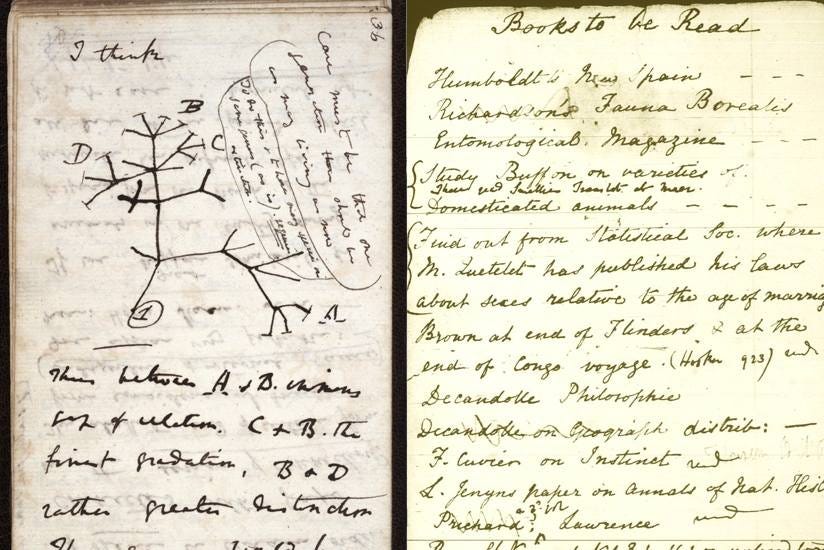 36
I think
Case must be that one
generation then should be
as many living as now
To do this & to have many species in
same genus (as is) requires
extinction.
B
C
D
A
1
Thus between A & B. immens
gap of relation. C & B. the
finest gradation, B & D
rather greater distinction
Books to be Read
Humboldt's New Spain - - -
Richardson's Fauna Borealis
Entomological Magazine - - -
Study Buffon on varieties of
Domesticated animals - - - -
Find out from Statistical Soc. where
M. Quetelet has published his laws
about sexes relative to the age of marriag
Brown at end of Flinders & at the
end of Congo voyage. (Hooker 923) read
Decandolle Philosophie
Decandolle on Geograph distrib: —
F. Cuvier on Instinct read
L. Jenyns paper on Annals of Nat. Hist
Prichard; Lawrence read